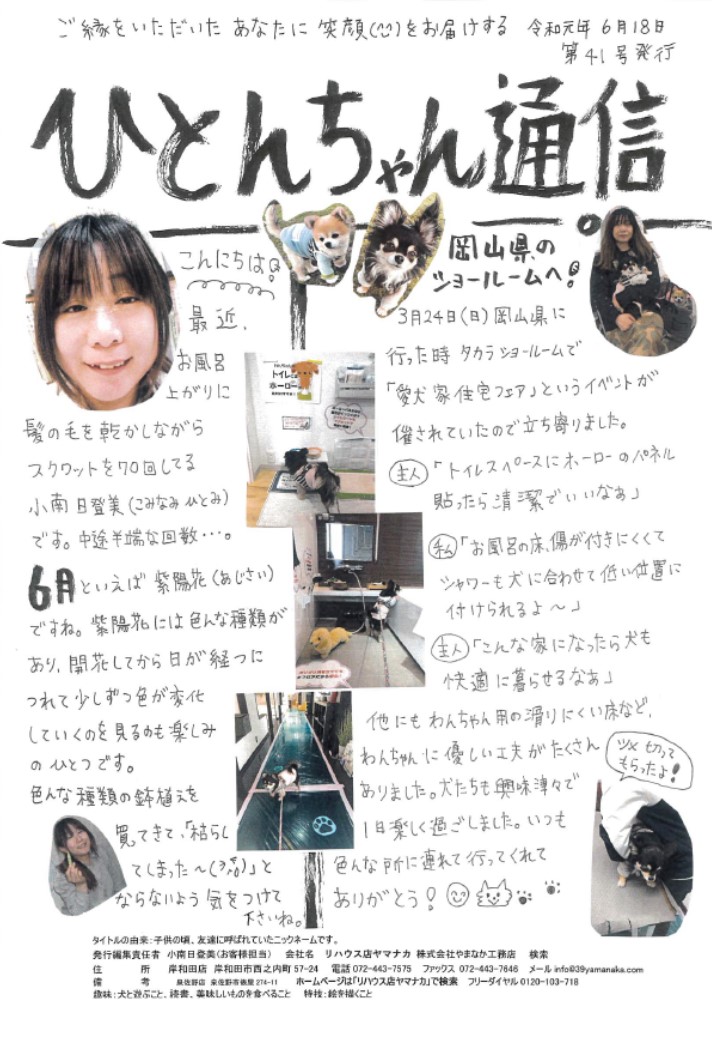 ご縁をいただいた あなたに 笑顔(^^)をお届けする 令和元年 6月18日
第41号発行
ひとんちゃん通信
こんにちは!
最近、
お風呂
上がりに
髪の毛を乾かしながら
スクワットを70回してる
小南日登美(こみなみひとみ)
です。中途半端な回数・・・。
6月といえば 紫陽花(あじさい)
ですね。紫陽花には色んな種類が
あり、開花してから日が経つに
つれて少しずつ色が変化
していくのを見るのも楽しみ
のひとつです。
色んな種類の鉢植えを
買てきて、「枯らし
てしまった〜」と
ならないよう気をつけて
下さいね。
岡山県の
ショールームへ!
3月24日(日)岡山県に
行った時 タカラショールームで
「愛犬家住宅フェア」というイベントが
催されていたので立ち寄りました。
主人「トイレスペースにホーローのパネル
貼ったら清潔でいいなぁ」
私「お風呂の床、傷が付きにくくて
シャワーも犬に合わせて低い位置に
付けられるよ〜」
主人「こんな家になったら犬も
快適に暮らせるなぁ」
他にもわんちゃん用の滑りにくい床など、
わんちゃんに優しい工夫がたくさん
ありました。犬たちも興味津々で
1日楽しく過ごしました。いつも
色んな所に連れて行ってくれて
ありがとう!
ツメ切って
もらったよ!
トイレに
ホーロー
タイトルの由来:子供の頃、友達に呼ばれていたニックネームです。
発行編集責任者 小南日登美(お客様担当) 会社名 リハウス店ヤマナカ 株式会社やまなか工務店 検索
住 所 岸和田店 岸和田市西之内町57-24 電話 072-443-7575 ファックス 072-443-7646 メール info@39yamanaka.com
備 考 泉佐野店 泉佐野市俵屋 274-11 ホームページは「リハウス店ヤマナカ」で検索 フリーダイヤル 0120-103-718
趣味:犬と遊ぶこと、読書、美味しいものを食べること 特技:絵を描くこと